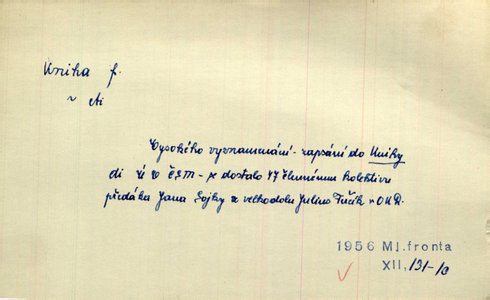 Kniha f.
v cti
Vysokého vyznamenání - zapsání do Knihy
cti ÚV ČSM - se dostalo 47 člennému kolektivu
předáka Jana Sojky z velkodolu Julius Fučík v OKD.
1956 Ml.fronta
XII, 131-/6